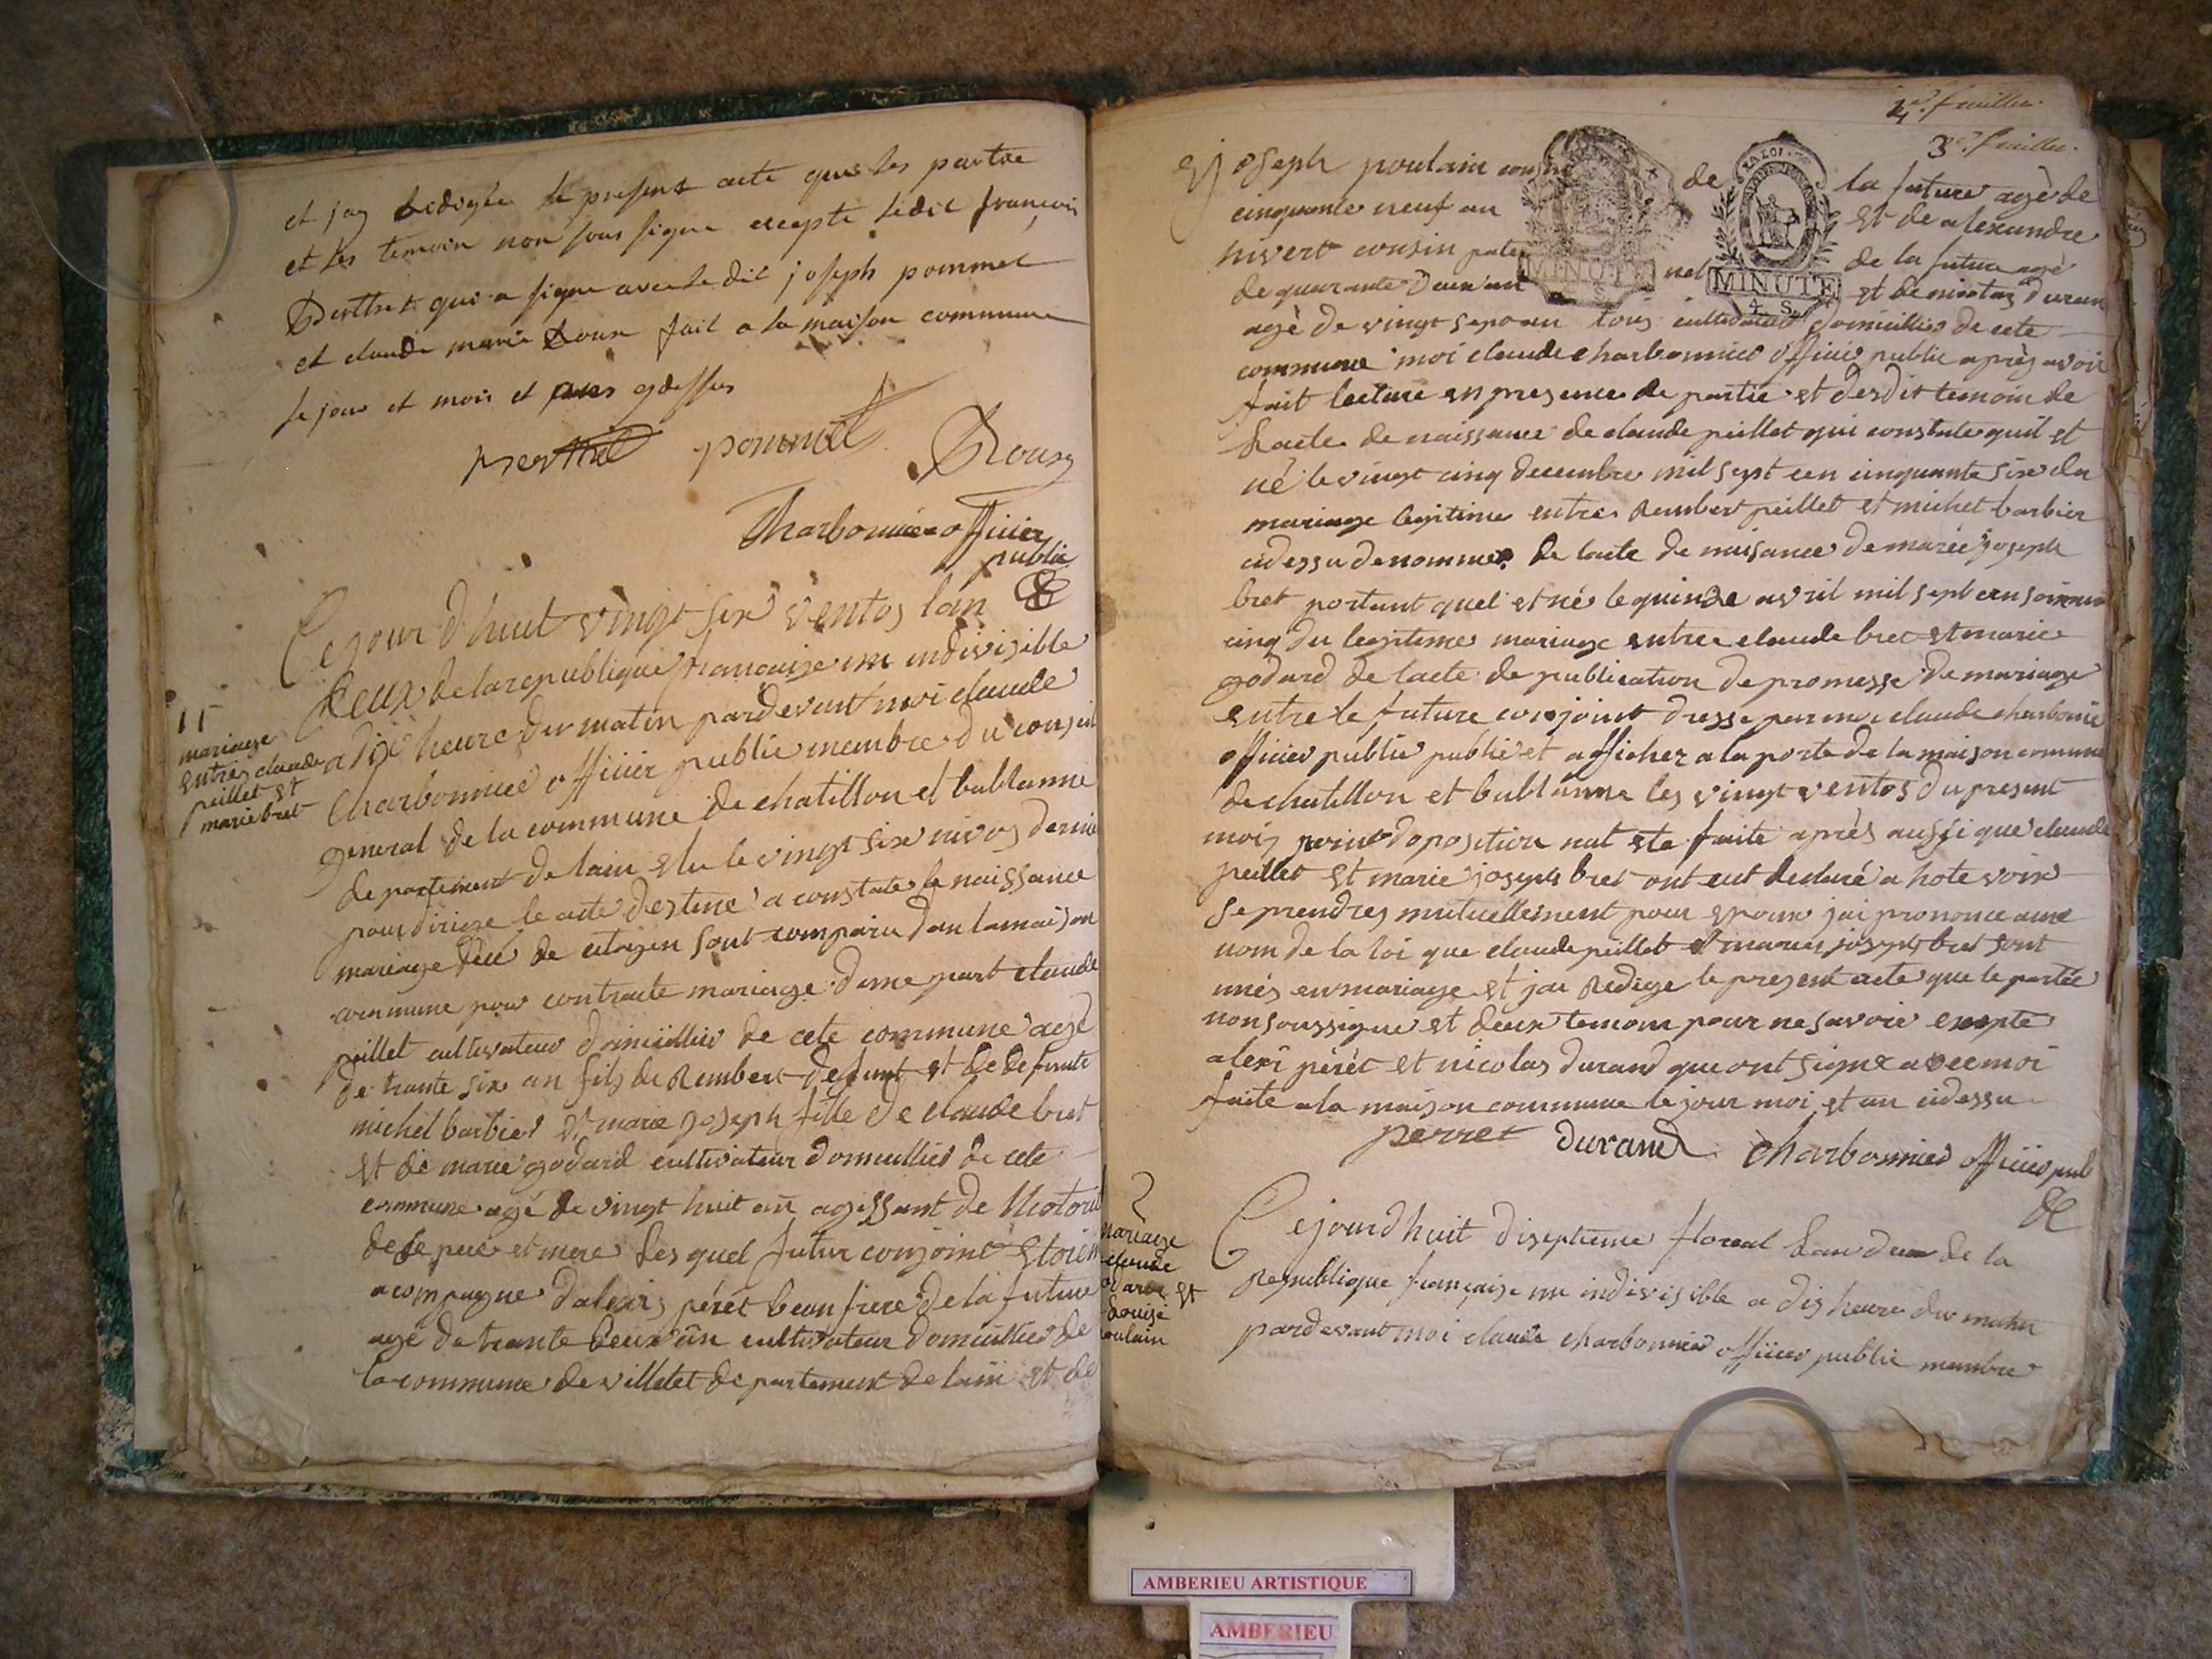 et jay Redigée le present acte que les partie
et les temoin non sous signe excepte ledit françois
Berthet qui a signe avec le dit joseph pommel
et claude marie Roux fait a la maison commune
le jour et mois et ans
pommel Roux
Charbonnier officier
public
Ce jour d'huit vingt six ventos lan
deux de la republique francaise un indivisible
a dix heure du matin pardevant moi claude
charbonnier officier public membre du conseil
general de la commune de chatillon et bublanne
departement de lain elu le vingt six nivos dernie
pour dirige le acte destiné a constate le naissance
mariage décé de citoyen sont comparu dan la maison
commune pour contracte mariage dune part claude
peillet cultivateur domicillié de cete commune agé
de trante six an fils de Rembert defunt et de defunte
michel barbier et marie joseph fille de claude bret
et de marie godard cultivateur domicillié de cete
commune agé de vingt huit an agissant de
de se pere et mere lesquel futur conjoint etoien
acompagne dalexis péret beau frere de la future
agé de trante deux an cultivateur domicillié de
la commune de villetet departement de lain et de
11
mariage
entre claude
peillet et
marie bret
4e feuillet
3e feuillet
joseph poulain cousin de la future agé de
cinquante neuf an et de alexandre
hivert cousin paternel de la future agé
de quarante deux an et de nicolas duran
agé de vingt sept an tous cultivateur domicillié de cete
commune moi claude charbonnier officier public après avoir
fait lecture en presence de partie et desdit temoin de
lacte de naissance de claude peillet qui constate quil et
né le vingt cinq decembre mil sept cen cinquante six du
mariage legitime entre Rembert peillet et michel barbier
cidessu denommé de lacte de naisance de marie joseph
bret portant quel et né le quinze avril mil sept cen soixante
cinq du legitime mariage entre claude bret et marie
godard de lacte de publication de promesse de mariage
entre le future conjoint dresse par moi claude charbonnie
officier public publié et afficher a la porte de la maison commune
de chatillon et bublanne les vingt ventos du present
mois point doposition nat ete faite après aussi que claude
peillet et marie joseph bret ont eut declaré a hote voix
se prendres mutuellement pour epoux jai prononce aux
nom de la loi que claude peillet et marie joseph bret sont
unés en mariage et jai Redige le present acte que le partie
non soussigne et deux temoin pour ne savoir exepte
alexi péret et nicolas durand que ont signe avec moi
faite a la maison commune le jour moi et an cidessu
perret durand charbonnier officier pub
2
mariage
claude
et
Louise
poulain
Ce jourd huit diseptieme floreal lan deux de la
Republique française un indivisible a dis heure du matin
pardevant moi claude charbonnier officier public membre
MINUTE
MINUTE
4 S.
LA LOI
AMBERIEU ARTISTIQUE
AMBERIEU